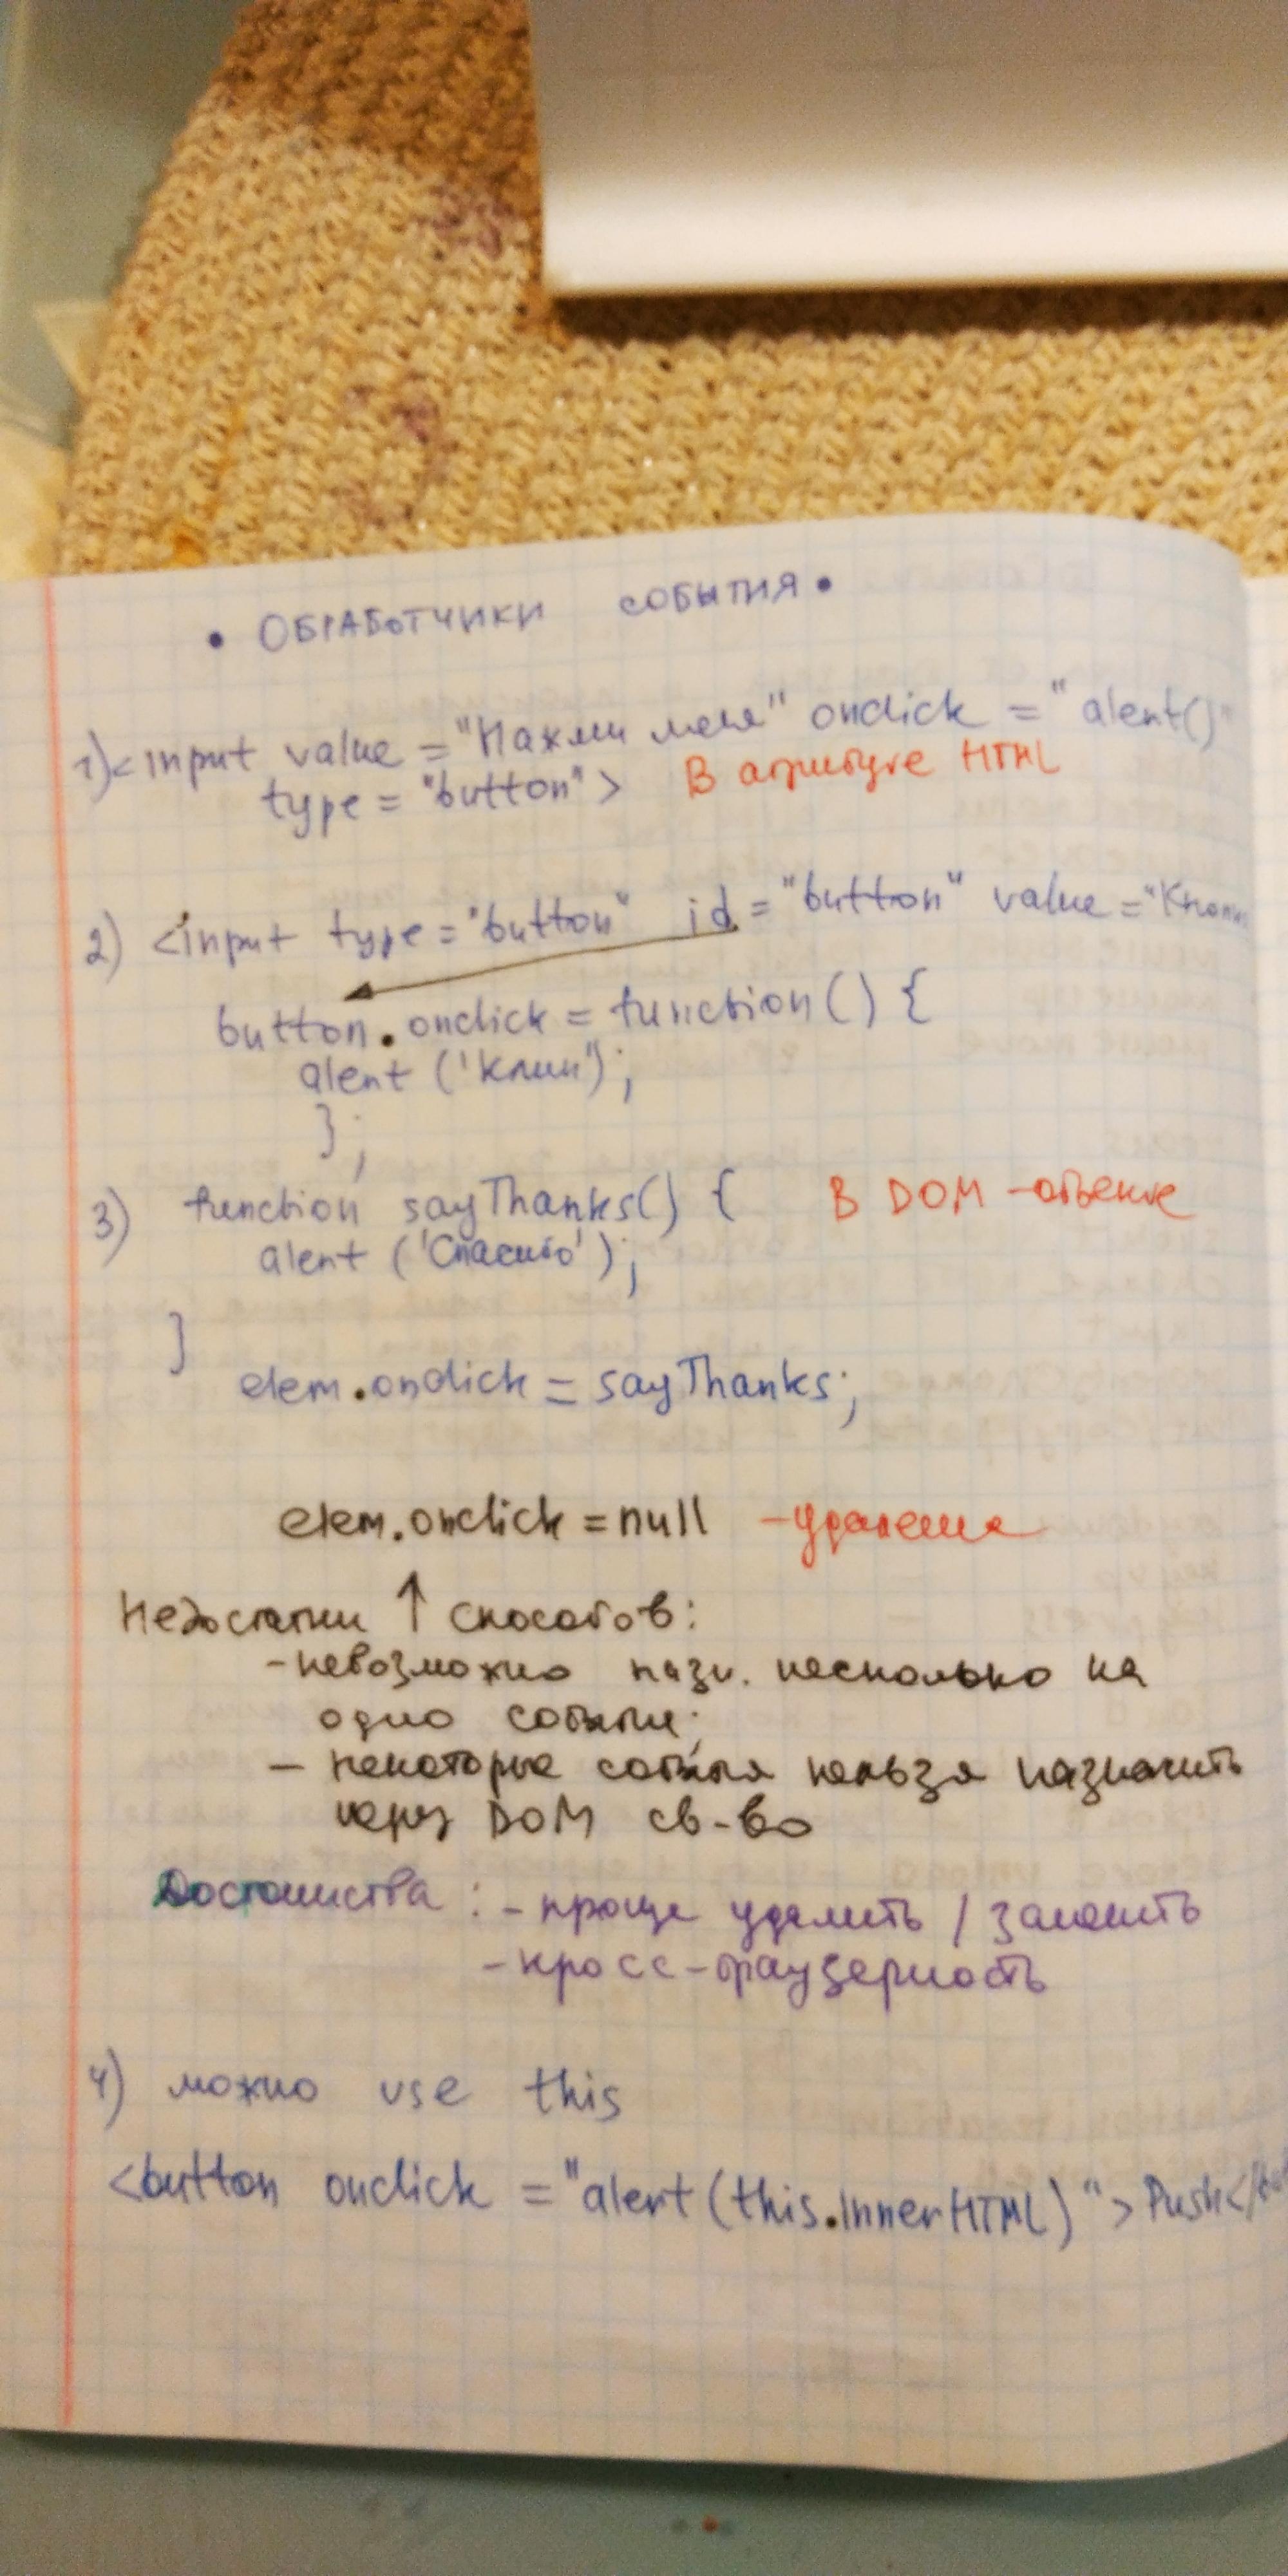 • ОБРАБОТЧИКИ СОБЫТИЯ •
1) <input value = "Нажми меня" onclick = "alert()"
type = "button"> В атрибуте HTML
2) <input type = "button" id = "button" value = "Кнопк
button.onclick = function() {
alert ('Клик');
};
3) function sayThanks() { В DOM-объекте
alert ('Спасибо');
}
elem.onclick = sayThanks;
elem.onclick = null - удаление
Недостатки ↑ способов:
- невозможно назн. несколько на
одно событие;
- некоторые события нельзя назначить
через DOM св-во
Достоинства : - проще удалить / заменить
- кросс-браузерность
4) можно use this
<button onclick = "alert(this.innerHTML)"> Push</but